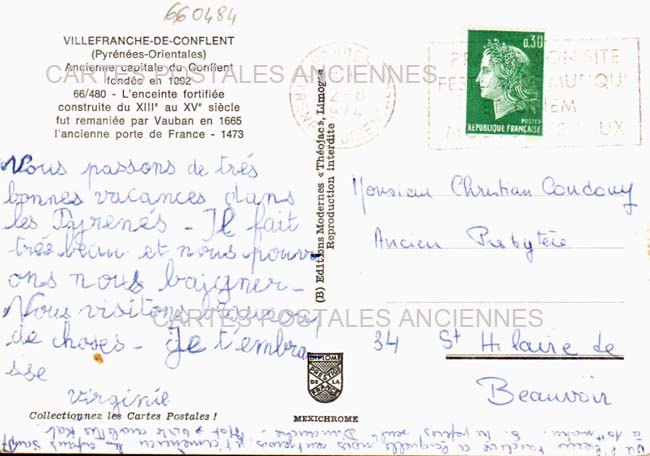 660484
VILLEFRANCHE-DE-CONFLENT
(Pyrénées-Orientales)
Ancienne capitale du Conflent
fondée en 1092
66/480 - L'enceinte fortifiée
construite du XIII° au XV° siècle
fut remaniée par Vauban en 1665
l'ancienne porte de France - 1473
CARTES POSTALES ANCIENNES
Nous passons de trés
bonnes vacances dans
les Pyrenés - Il fait
trés beau et nous pouv
ons nous baigner -
Nous visitons beaucoup
de choses - Je t'embra
sse
Virginie
Collectionnez les Cartes Postales !
(B) Editions Modernes « Théojac », Limoges
Reproduction interdite
DIPLOME
PRESTIGE
DE LA
FRANCE
MEXICHROME
2-8
0,30
POSTES
REPUBLIQUE FRANÇAISE
SITE
Monsieur Christian Coudouy
Ancien Presbytère
CARTES POSTALES ANCIENNES
34 St Hilaire de
Beauvoir